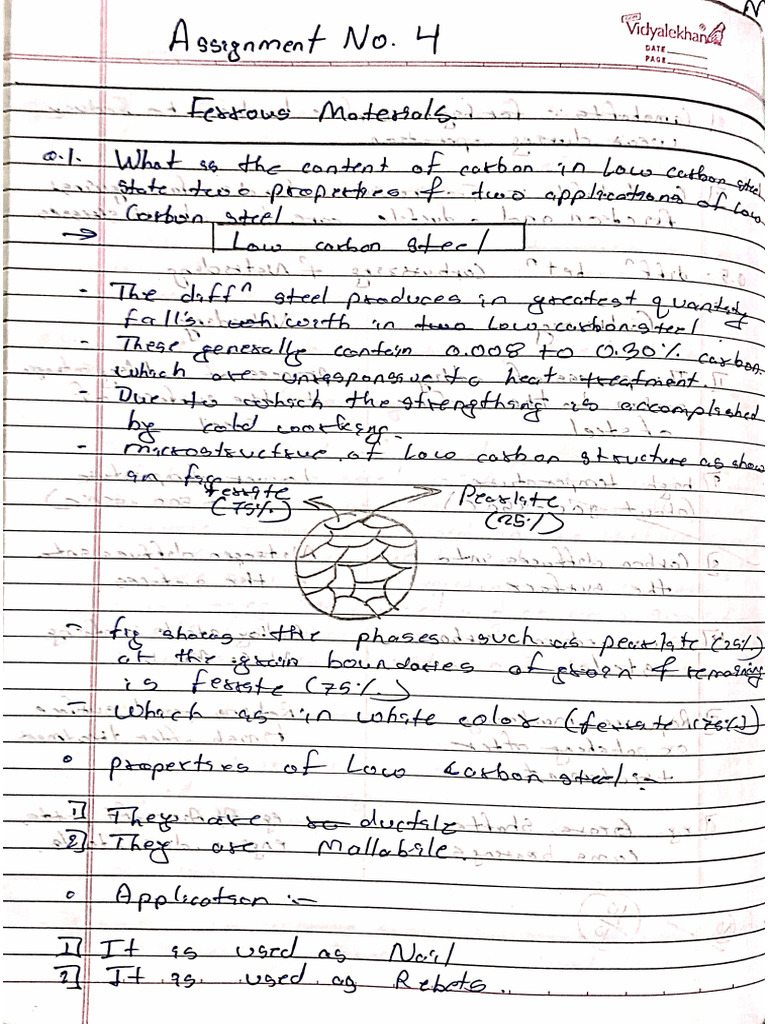 Assignment No. 4
Vidyalekhan
DATE
PAGE
Ferrous Materials.
Q.1. What is the content of carbon in low carbon steel
state two properties & two applications of low
Carbon steel
→ Low carbon steel
- The diffn steel produces in greatest quantity
falls with in low carbon steel.
- These generally contain 0.008 to 0.30% carbon.
which are unresponsive to heat treatment.
- Due to which the strengthing is accomplished
by cold working.
- microstructrue of low carbon structure as show
in fig.
ferrate (75%.)
Pearlate (25%)
- fig shows the phases such as pearlate (25%.)
at the grain boundaries of grain & remaining
is ferrate (75%.)
- Which as in white color (ferrate (75%.)
o properties of Low Carbon steel :-
1] They are ductile
2] They are Mallabile.
o Application :-
1] It is used as Nail
2] It is used as Rebots.